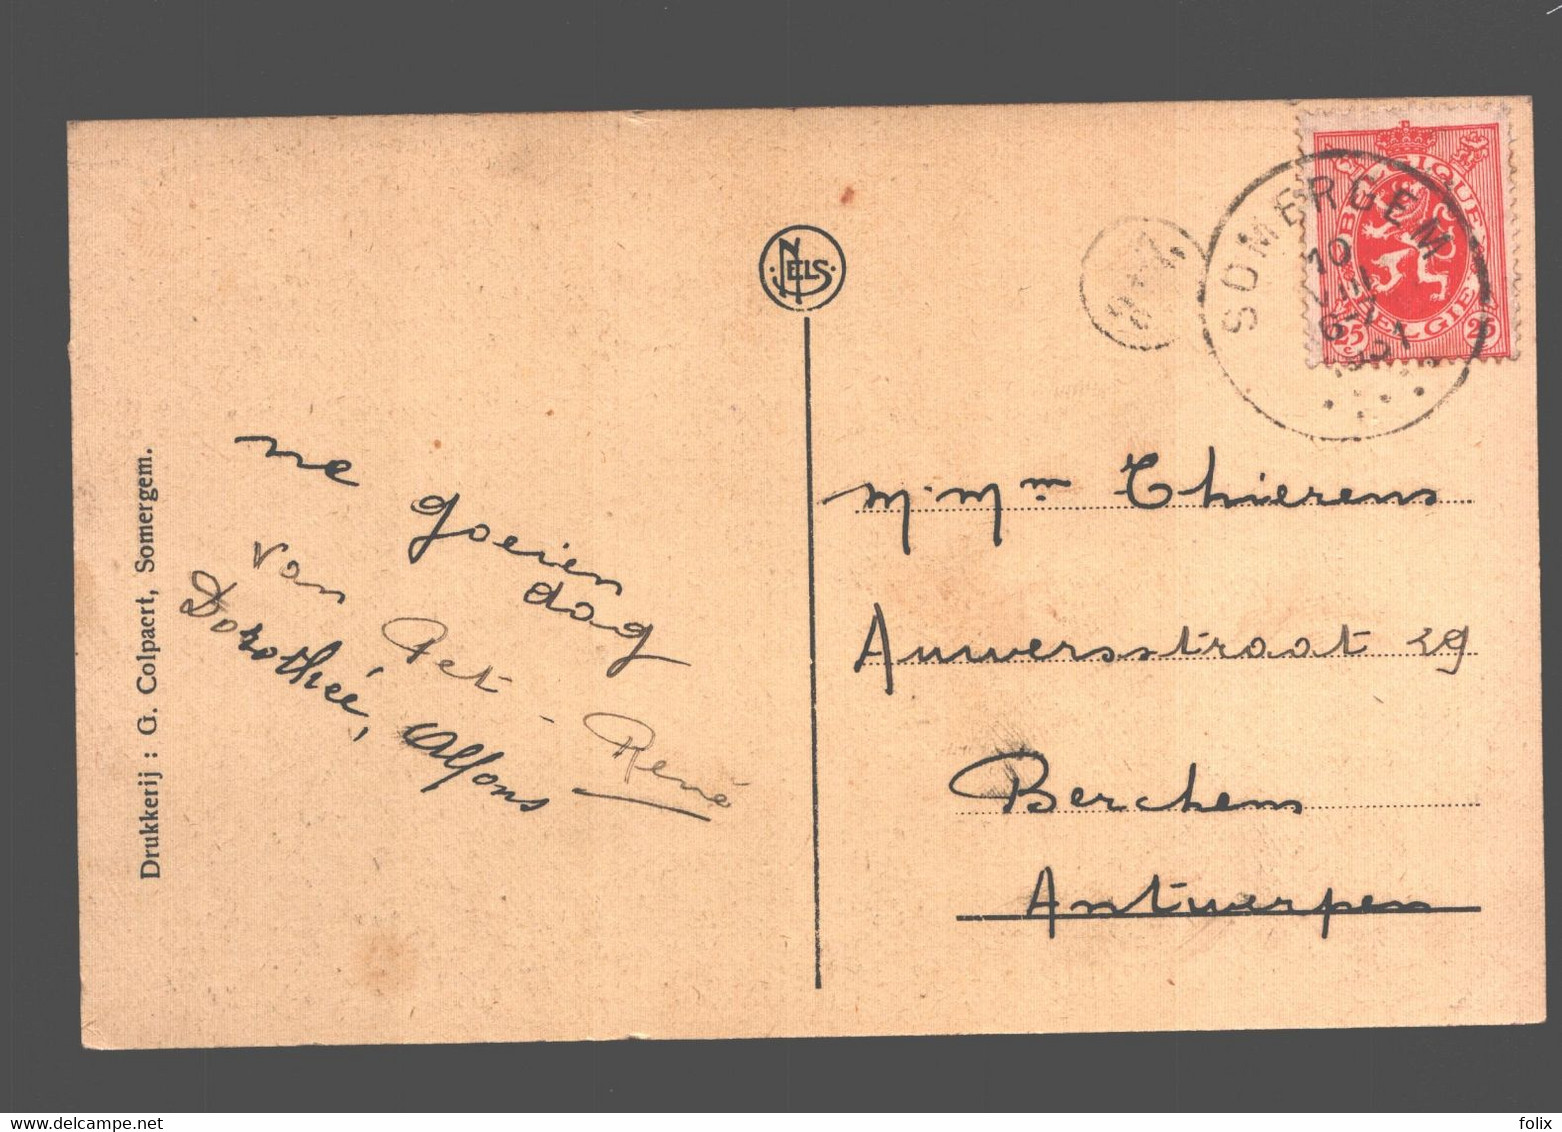 Drukkerij : G. Colpaert, Somergem.
NELS
SOMERGEM
10
VIII
BELGIQUE
BELGIE
25 c 25 c
ne goeien
dag
van Pet - René
Dorothée, Alfons
M. Mm Thierens
Anwersstraat 29
Berchem
Antwerpen
folix